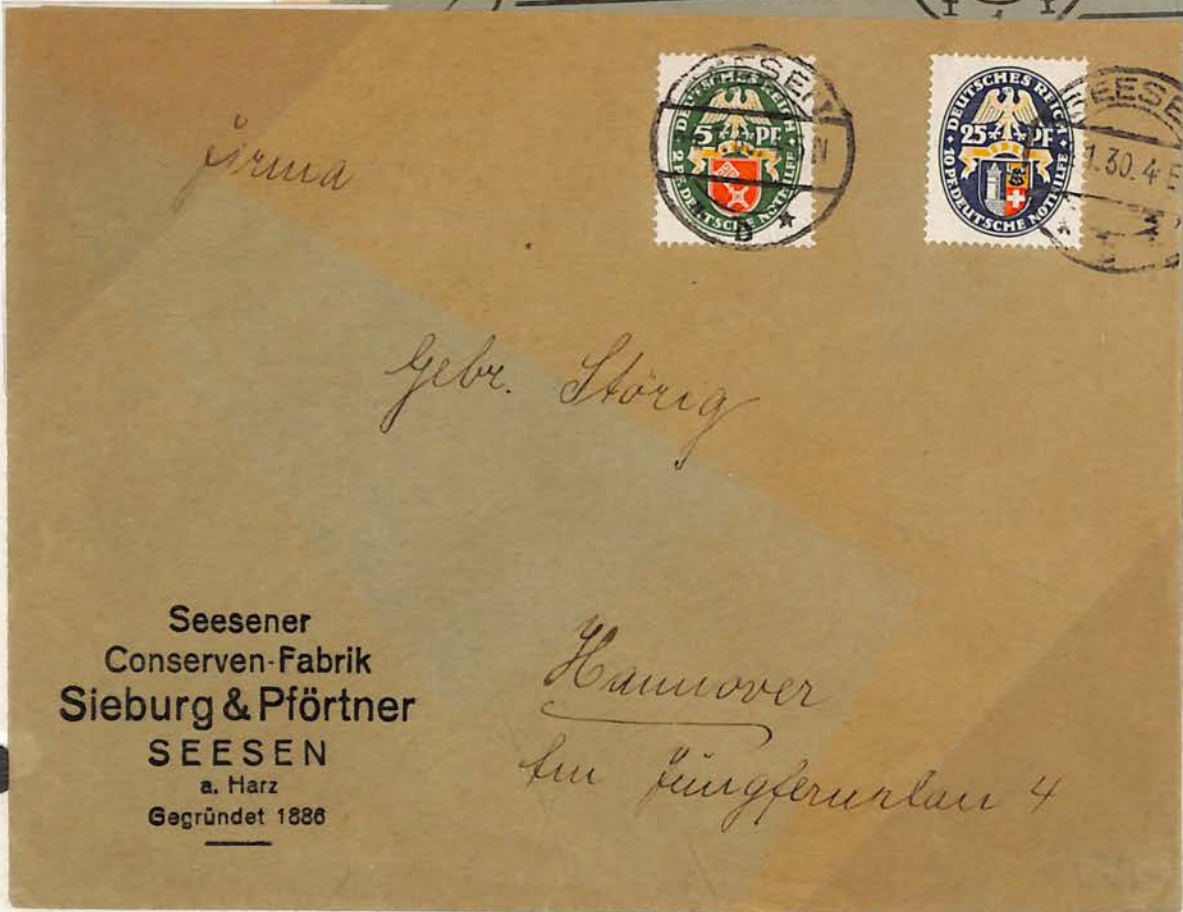 DEUTSCHES REICH
5 PF
2 PF. DEUTSCHE NOTHILFE
DEUTSCHES REICH
25 PF
10 PF. DEUTSCHE NOTHILFE
SEESEN
b
EESE
1.30.4
Firma
Gebr. Störig
Hannover
Am Jungfernplan 4
Seesener
Conserven-Fabrik
Sieburg & Pförtner
SEESEN
a. Harz
Gegründet 1886